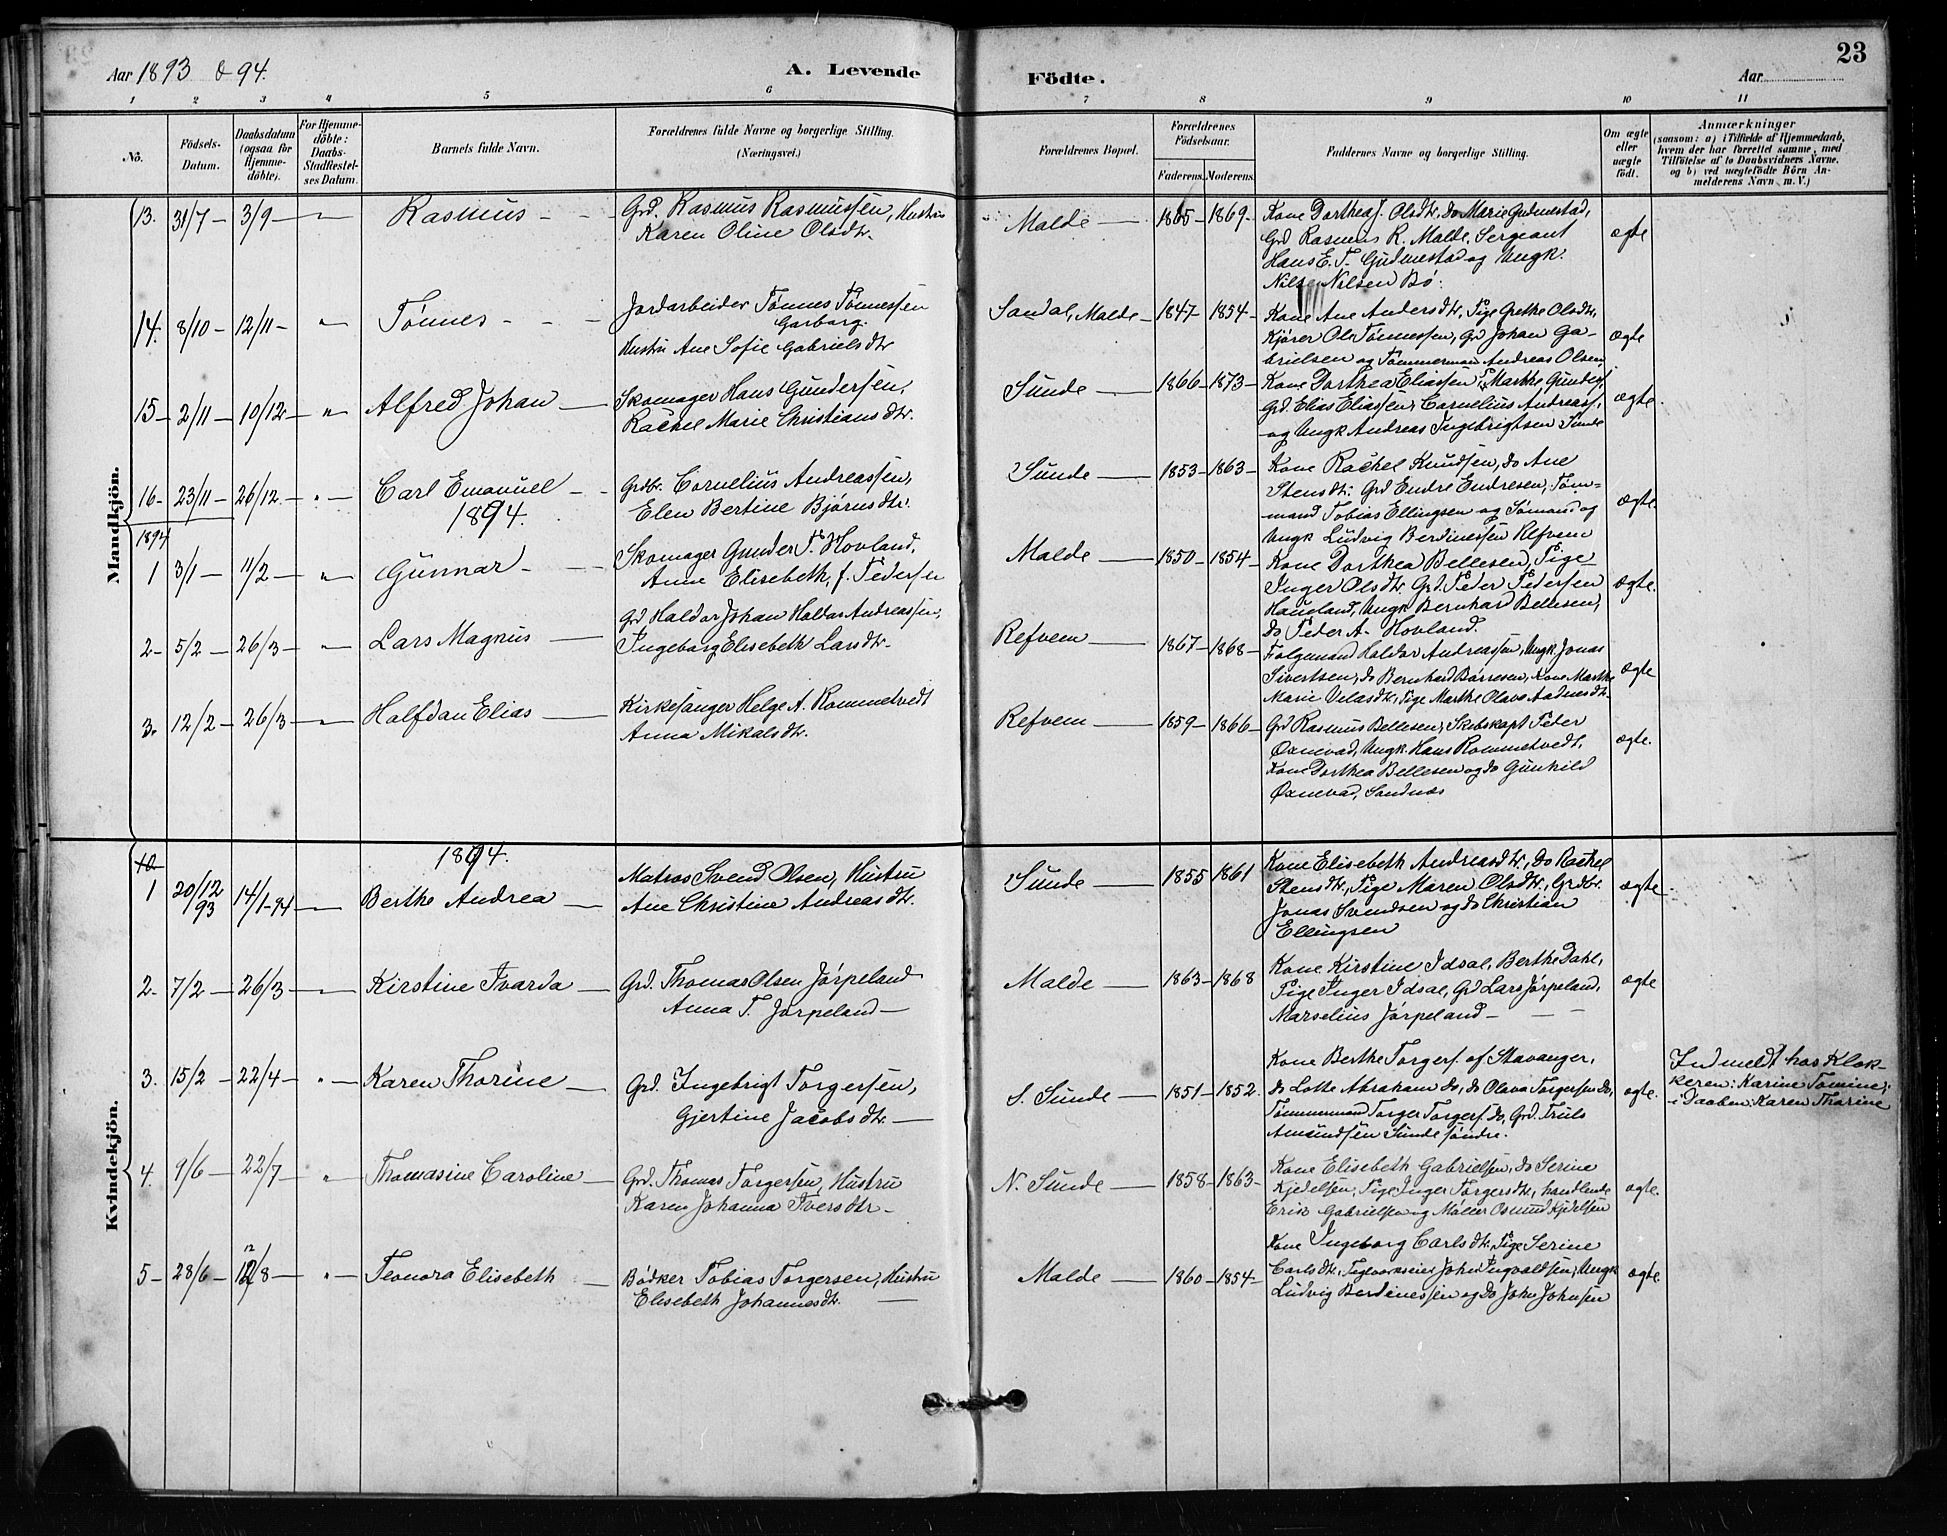 Aar 1893 & 94.
A. Levende
Födte.
Aar
23
1 2 3 4 5 6 7 8 9 10 11
No.
Födsels-
Datum.
Daabsdatum
(ogsaa for
Hjemme-
döbte).
For Hjemme-
döbte:
Daabs-
Stadfæstel-
ses Datum.
Barnets fulde Navn.
Forældrenes fulde Navne og borgerlige Stilling.
(Næringsvei.)
Forældrenes Bopæl.
Forældrenes
Födselsaar.
Faderens. Moderens.
Faddernes Navne og borgerlige Stilling.
Om ægte
eller
uægte
födt.
Anmærkninger
(saasom: a) i Tilfælde af Hjemmedaab,
hvem der har forrettet samme, med
Tilföielse af to Daabsvidners Navne,
og b) ved uægtefödte Börn An-
melderens Navn m. V.)
Mandkjön.
13. 31/7 - 3/9 - " Rasmus - - Grd. Rasmus Rasmussen, Hustru
Karen Oline Olsdtr.
Malde - 1865 - 1869 - Kone Dorthea J. Olsdtr, do Marie Gudmestad,
Grd Rasmus R. Malde, Sergeant
Hans E. T. Gudmestad og Ungk.
Nils Nilsen Bø.
ægte
14. 8/10 - 12/11 - " Tønnes - - - Jordarbeider Tønnes Tønnessen
Garborg.
Hustru Ane Sofie Gabrielsdtr
Sandal, Malde - 1847 - 1854 - Kone Ane Andersdtr, Pige Grethe Olsdtr,
Kjører Ole Tønnessen, Grd Johan Ga-
brielsen og Tømmermand Andreas Olsen
ægte
15 - 2/11 - 10/12 - " Alfred Johan - Skomager Hans Gundersen,
Rachel Marie Christiansdtr.
Sunde - 1866 - 1873 - Kone Dorthea Eliassen, P. Marthe Gunders.
Grd. Elias Eliassen, Cornelius Andreass.
og Ungk Andreas Ingebrigtsen Sunde
ægte.
16 - 23/11 - 26/12. - " - Carl Emanuel - - Grdbr. Cornelius Andreassen,
Elen Bertine Bjørnsdtr.
Sunde - 1853 - 1863 - Kone Rachel Knudsen, do Ane
Stensdtr. Grd Endre Endresen, Tøm-
mand Tobias Ellingsen og Sømand og
Ungk Ludvig Berdinessen Refvem
ægte.
1894.
1894
1 3/1 - 11/2 - " Gunnar - - Skomager Gunder P. Hovland,
Anne Elisabeth, f. Pedersen
Malde - 1850 - 1854 - Kone Dorthea Bellesen, Pige
Inger Olsdtr. Grd. Peder Pedersen
Haueland, Ungk Bernhard Bellesen,
do Peder A. Hovland.
ægte.
2 - 5/2 - 26/3 - " Lars Magnus - Grd Haldor Johan Haldor Andreassen,
Ingeborg Elisebeth Larsdtr.
Refvem - 1867 - 1868 - Folgemand Haldor Andreassen, Ungk Jonas
Sivertsen, do Bernhard Børresen, Kone Marthe
Marie Velasdtr, Pige Marthe Olava Aadnesdtr
ægte
3. 12/2 - 26/3 - " Halfdan Elias - Kirkesanger Helge A. Rommetvedt
Anna Mikalsdtr.
Refvem - 1859 - 1866 - Grd Rasmus Bellesen, Skibskapt Peder
Oxnevad, Ungk. Hans Rommetvedt,
Kone Dorthea Bellesen og do Gunhild
Øxnevad, Sandnæs
ægte.
Kvindekjön.
10
1894.
1 20/12 93 14/1-94 - Berthe Andrea - Matros Svend Olsen, Hustru
Ane Christine Andreasdtr.
Sunde - 1855 1861 Kone Elisebeth Andreasdtr, do Rachel
Stensdtr, Pige Maren Olsdtr, Grdbr.
Jonas Svendsen og do Christian
Ellingsen
ægte -
2 - 7/2 - 26/3 - Kirstine Ivarda - Grd. Thomas Olsen Jørpeland
Anna T. Jørpeland -
Malde - 1863 - 1868 Kone Kirstine Idsal, Berthe Dahl,
Pige Inger Idsal, Grd Lars Jørpeland,
Marselius Jørpeland - - -
ægte
3. 15/2 - 22/4 - " - Karen Thorine - Grd. Ingebrigt Torgersen,
Gjertine Jacobsdtr. -
S. Sunde - 1851 - 1852. Kone Berthe Torgers. af Stavanger,
do Lotte Abraham do, do Olava Torgersen do,
Tømmermand Torger Torgers. do, Grd. Truls
Amundsen Sunde søndre.
ægte.
Indmeldt hos Klok-
keren: Karine Tomine;
i Daaben: Karen Thorine
4. 9/6 - 22/7 " Thomasine Caroline - Grd. Thomas Torgersen, Hustru
Karen Johanna Iversdtr -
N. Sunde - 1858 - 1863 - Kone Elisebeth Gabrielsen, do Serine
Kjedelsen, Pige Inger Torgersdtr, handlende
Erik Gabrielsen og Møller Osmund Kjedelsen
ægte.
5 - 28/6 - 12/8 - " - Teonora Elisebeth - Bødker Tobias Torgersen, Hustru
Elisebeth Johannesdtr. -
Malde - 1860 - 1854 - Kone Ingeborg Carlsdtr, Pige Serine
Carlsdtr, Teglværkseier John Ingvaldsen, Ungk
Ludvig Berdinessen og do John Johnsen
ægte